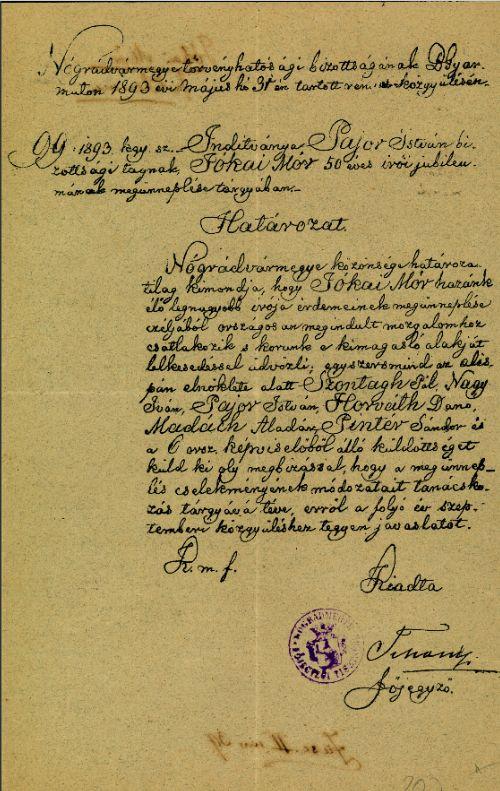 Nógrádvármegye törvényhatósági bizottságának B.Gyar-
maton 1893 évi május hó 31 én tartott ren. közgyülésén.
99. 1893. kgy. sz. Inditványa Pajor István bi-
zottsági tagnak, Jókai Mór 50 éves irói jubileu-
mának megünneplése tárgyában.
Határozat.
Nógrádvármegye közönsége határoza-
tilag kimondja, hogy Jókai Mór hazánk
élő legnagyobb irója érdemeinek megünneplése
czéljából országosan megindult mozgalomhoz
csatlakozik s korunk e kimagasló alakját
lelkesedéssel üdvözli; egyszersmind az alis-
pán elnöklete alatt Szontagh Pál, Nagy
Iván, Pajor István, Horváth Danó,
Madách Aladár, Pintér Sándor és
a 6 orsz. képviselőből álló küldöttséget
küld ki oly megbizással, hogy a megünnep-
lés cselekményének módozatait tanácsko-
zás tárgyává téve, erről a folyó év szep-
temberi közgyüléshez tegyen javaslatot.
K. m. f.
Kiadta
NÓGRÁDMEGYE
főjegyző.